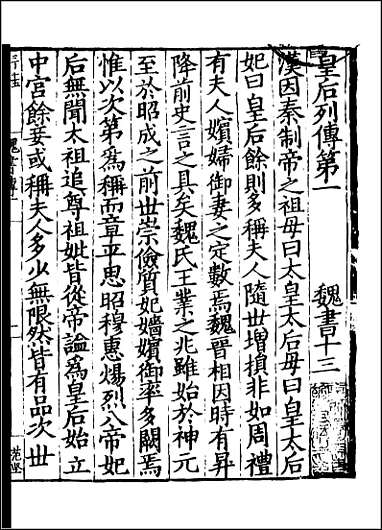 皇后列傳第一　魏書十三
漢因秦制帝之祖母曰太皇太后母曰皇太后
妃曰皇后餘則多稱夫人隨世增損非如周禮
有夫人嬪婦御妻之定數焉魏晉相因時有昇
降前史言之具矣魏氏王業之兆雖始於神元
至於昭成之前世崇儉質妃嬙嬪御率多闕焉
惟以次第爲稱而章平思昭穆惠煬烈八帝妃
后無聞太祖追尊祖妣皆從帝謚爲皇后始立
中宮餘妾或稱夫人多少無限然皆有品次世